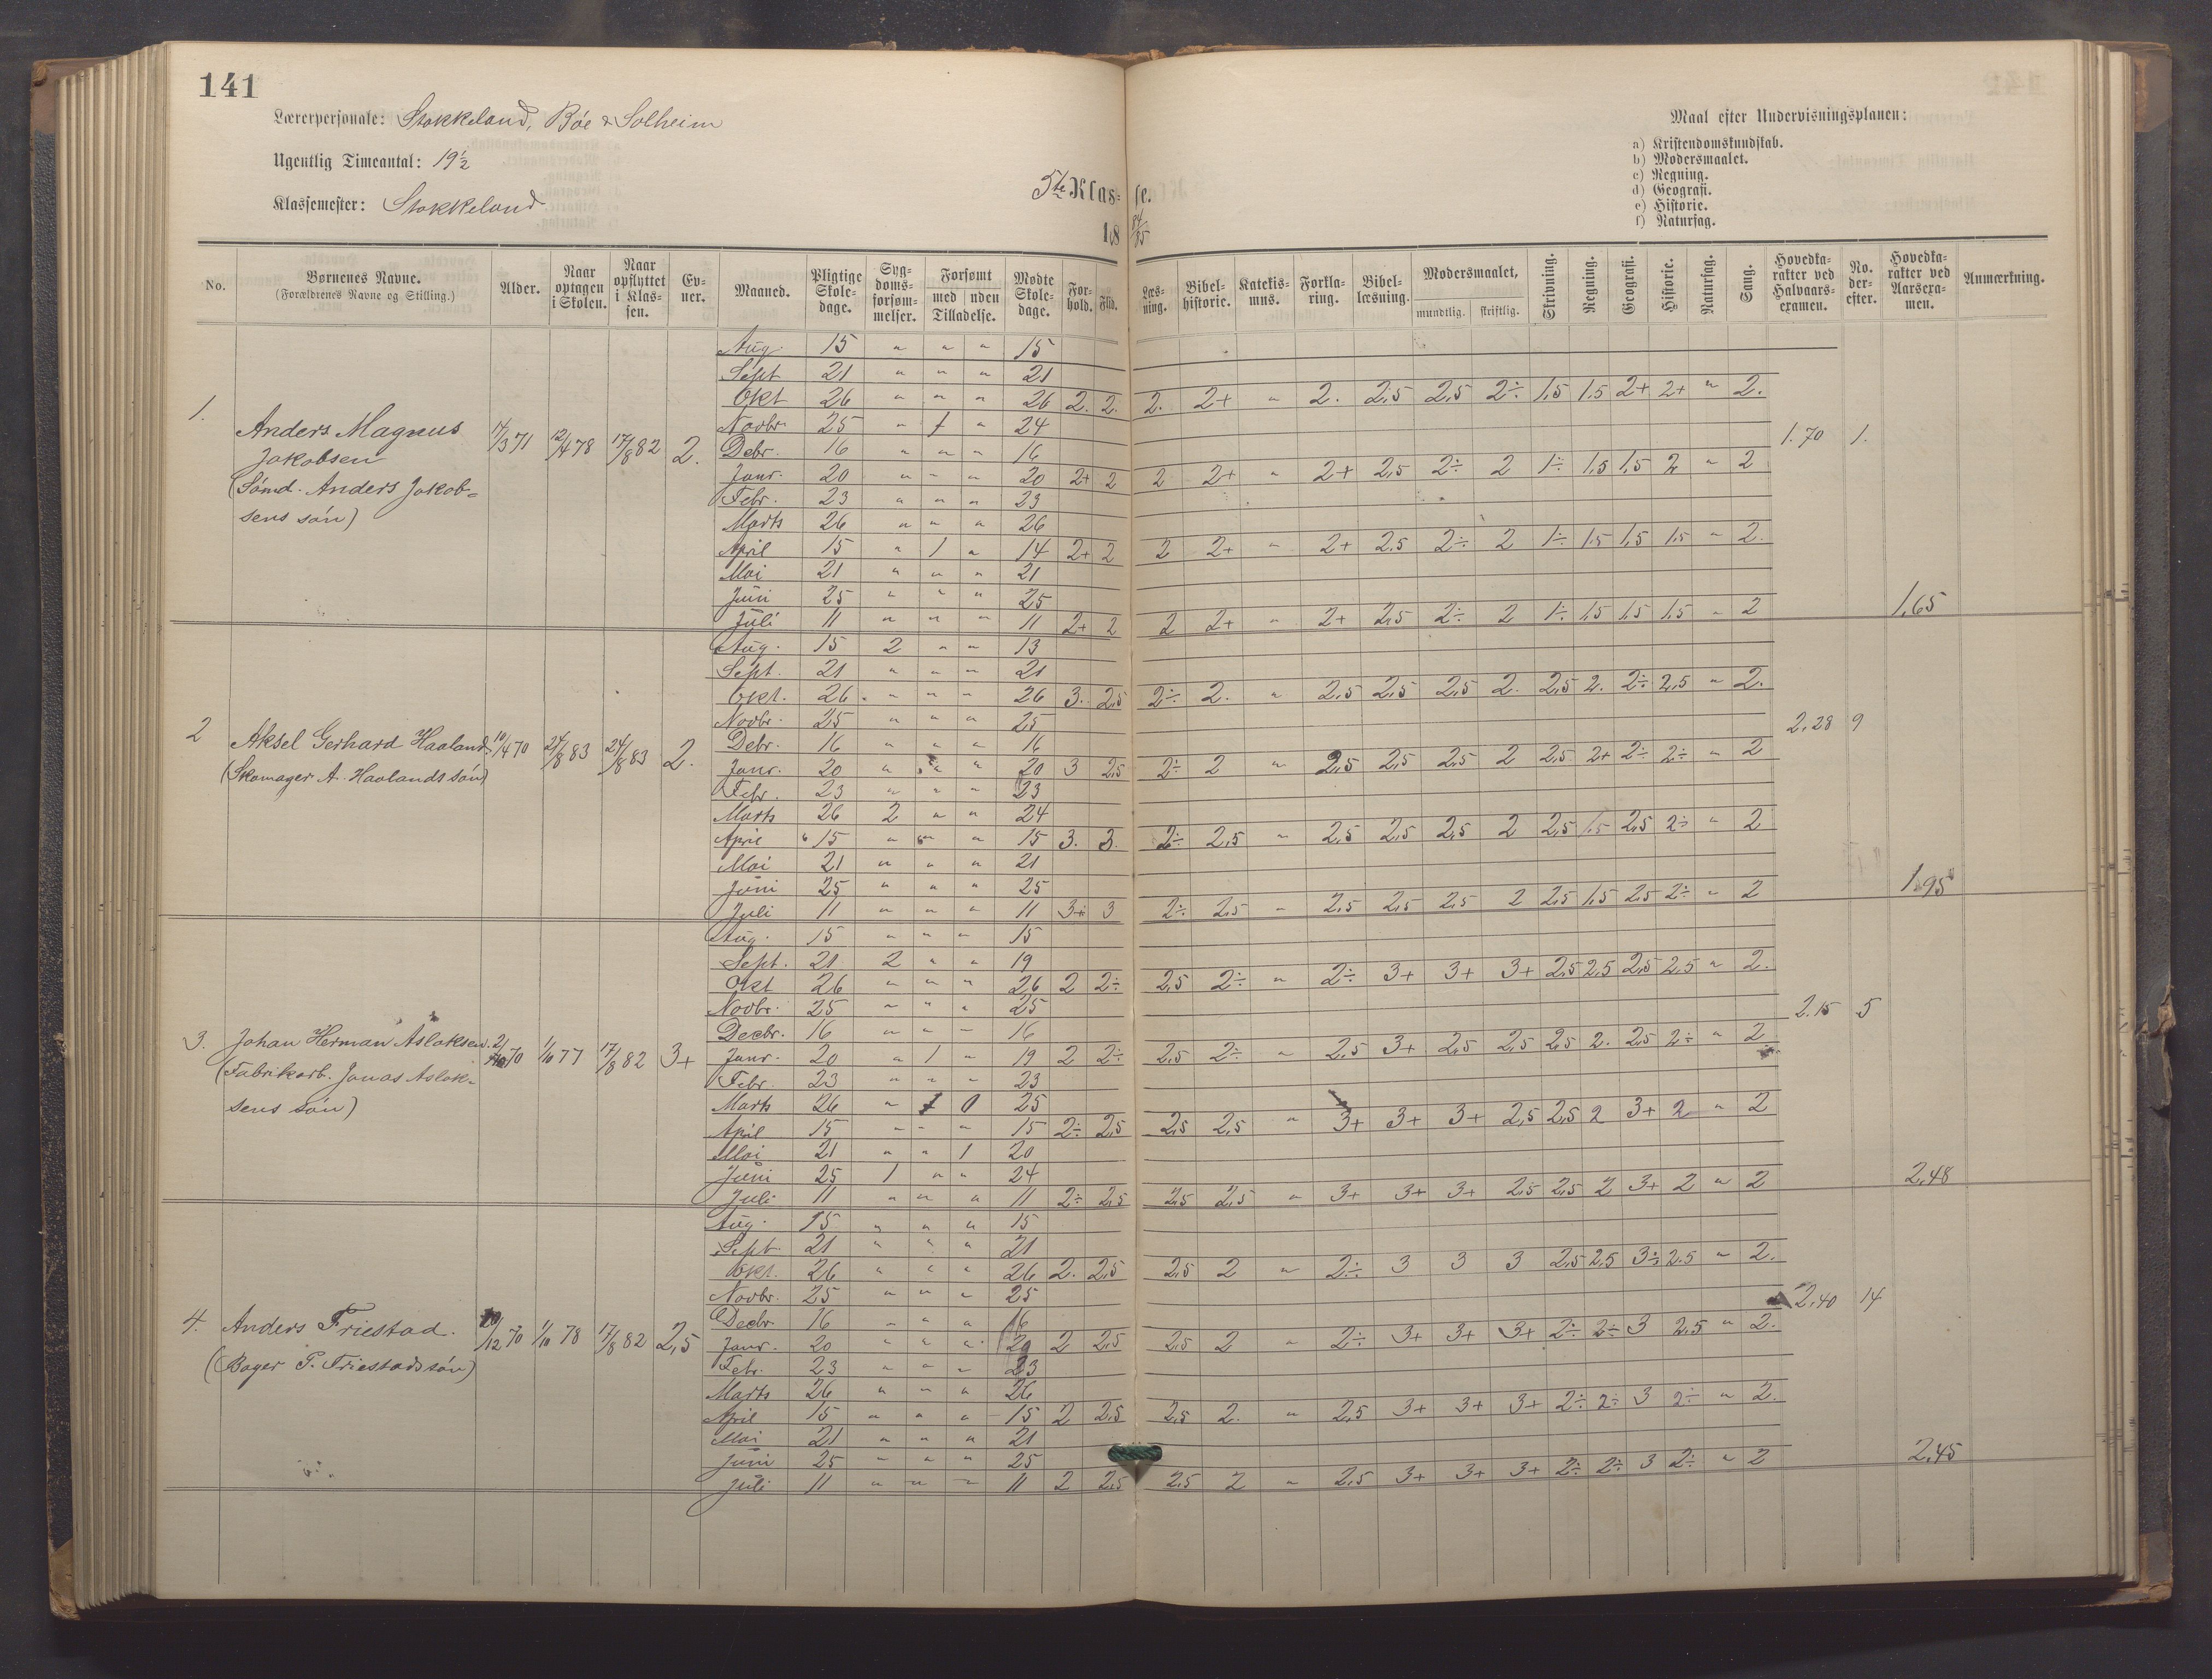 141
Lærerpersonale: Stokkeland, Bøe & Solheim
Ugentlig Timeantal: 19½
Klassemester: Stokkeland
5te Klasse.
18 84/85
Maal efter Undervisningsplanen:
a) Kristendomskundskab.
b) Modersmaalet.
c) Regning.
d) Geografi.
e) Historie.
f) Naturfag.
No. Børnenes Navne. (Forældrenes Navne og Stilling.) Alder. Naar optagen i Skolen. Naar opflyttet i Klassen. Evner. Maaned. Pligtige Skoledage. Sygdomsforsømmelser. Forsømt med uden Tilladelse. Mødte Skoledage. Forhold. Flid. Læsning. Bibelhistorie. Katekismus. Forklaring. Bibellæsning. Modersmaalet, mundtlig. skriftlig. Skrivning. Regning. Geografi. Historie. Naturfag. Sang. Hovedkarakter ved Halvaarsexamen. No. derefter. Hovedkarakter ved Aarsexamen. Anmærkning.
1. Anders Magnus Jakobsen (Sømd. Anders Jakobsens søn) 17/3 71 12/4 78 17/8 82 2. 1.70 1. 1,65
Aug. 15 " " " 15
Sept 21 " " " 21
Okt 26 " " " 26 2. 2. 2. 2+ " 2. 2,5 2,5 2÷ 1,5 1,5 2+ 2+ " 2.
Novbr. 25 " 1 " 24
Debr. 16 " " " 16
Janr. 20 " " " 20 2+ 2 2 2+ " 2+ 2,5 2÷ 2 1÷ 1,5 1,5 2 " 2
Febr. 23 " " " 23
Marts 26 " " " 26
April 15 " 1 " 14 2+ 2 2 2+ " 2+ 2,5 2÷ 2 1÷ 1,5 1,5 1,5 " 2.
Mai 21 " " " 21
Juni 25 " " " 25
Juli 11 " " " 11 2+ 2 2 2+ " 2+ 2,5 2÷ 2 1÷ 1,5 1,5 1,5 " 2
2 Aksel Gerhard Haaland (Skomager A. Haalands søn) 10/4 70 24/8 83 24/8 83 2. 2,28 9 1,95
Aug. 15 2 " " 13
Sept. 21 " " " 21
Okt. 26 " " " 26 3. 2,5 2÷ 2. " 2,5 2,5 2,5 2. 2,5 2. 2÷ 2,5 " 2.
Novbr. 25 " " " 25
Debr. 16 " " " 16
Janr. 20 " " " 20 3 2,5 2÷ 2 " 2,5 2,5 2,5 2 2,5 2+ 2÷ 2÷ " 2
Febr. 23 " " " 23
Marts 26 2 " " 24
April 15 " " " 15 3. 3. 2÷ 2,5 " 2,5 2,5 2,5 2 2,5 1,5 2,5 2÷ " 2
Mai 21 " " " 21
Juni 25 " " " 25
Juli 11 " " " 11 3+ 3 2÷ 2,5 " 2,5 2,5 2,5 2 2,5 1,5 2,5 2÷ " 2
3. Johan Herman Aslaksen. (Fabrikarb. Jonas Aslaksens søn) 70 1/10 77 17/8 82 3+ 2.15 5 2,48
Aug. 15 " " " 15
Sept. 21 2 " " 19
Okt 26 " " " 26 2 2÷ 2,5 2÷ " 2÷ 3+ 3+ 3+ 2,5 2,5 2,5 2,5 " 2.
Novbr. 25 " " " 25
Decbr. 16 " " " 16
Janr. 20 " 1 " 19 2 2÷ 2,5 2÷ " 2,5 3+ 2,5 2,5 2,5 2. 2,5 2÷ " 2
Febr. 23 " " " 23
Marts 26 " 1 0 25
April 15 " " " 15 2÷ 2,5 2,5 2,5 " 3+ 3+ 3+ 2,5 2,5 2 3+ 2 " 2
Mai 21 " " 1 20
Juni 25 1 " " 24
Juli 11 " " " 11 2÷ 2,5 2,5 2,5 " 3+ 3+ 3+ 2,5 2,5 2 3+ 2 " 2
4. Anders Friestad. (Bager T. Friestads søn) /12 70 1/10 78 17/8 82 2,5 2,40 14 2,45
Aug. 15 " " " 15
Sept. 21 " " " 21
Okt. 26 " " " 26 2. 2,5 2,5 2 " 2÷ 3 3 3 2,5 2,5 3÷ 2,5 " 2.
Novbr. 25 " " " 25
Decbr. 16 " " " 16
Janr. 20 " " " 20 2 2,5 2,5 2 " 2÷ 3+ 3+ 3+ 2÷ 2÷ 3 2,5 " 2.
Febr. 23 " " " 23
Marts 26 " " " 26
April 15 " " " 15 2 2,5 2,5 2. " 2,5 3+ 3+ 3+ 2÷ 2÷ 3 2÷ " 2.
Mai 21 " " " 21
Juni 25 " " " 25
Juli 11 " " " 11 2 2,5 2,5 2 " 2,5 3+ 3+ 3+ 2÷ 2÷ 3 2÷ " 2